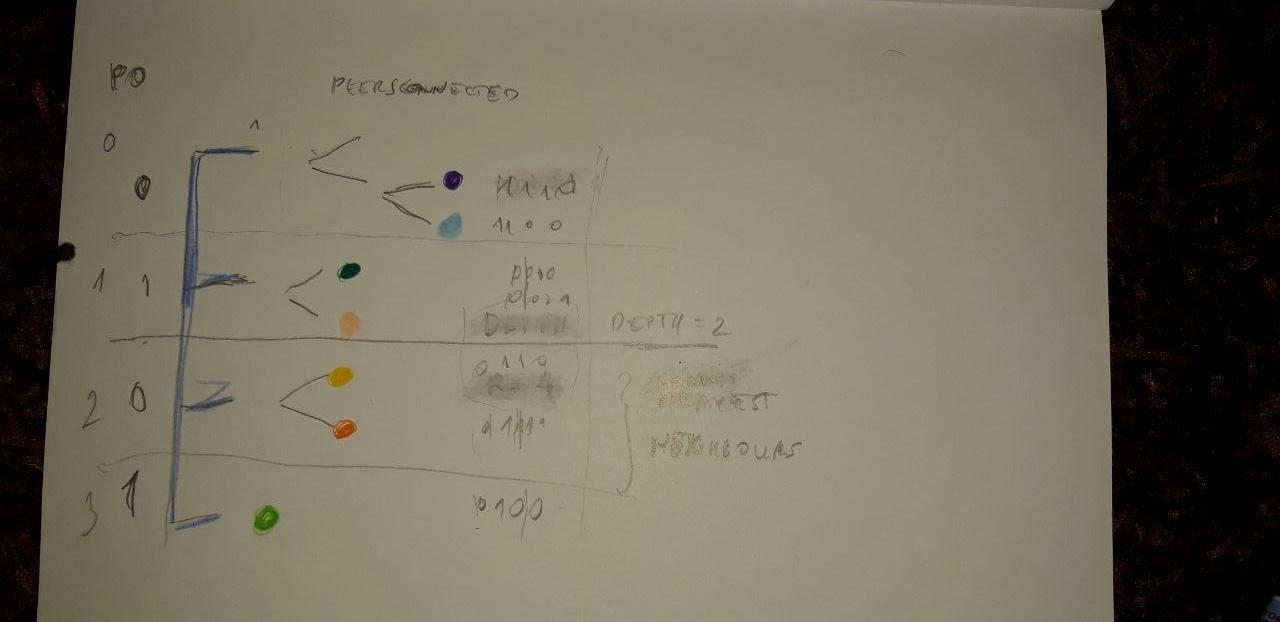 PO
PEERS CONNECTED
0
0
1100
1 1
0010
DEPTH
DEPTH = 2
0110
2 0
NEAREST
NEIGHBOURS
3 1
0100